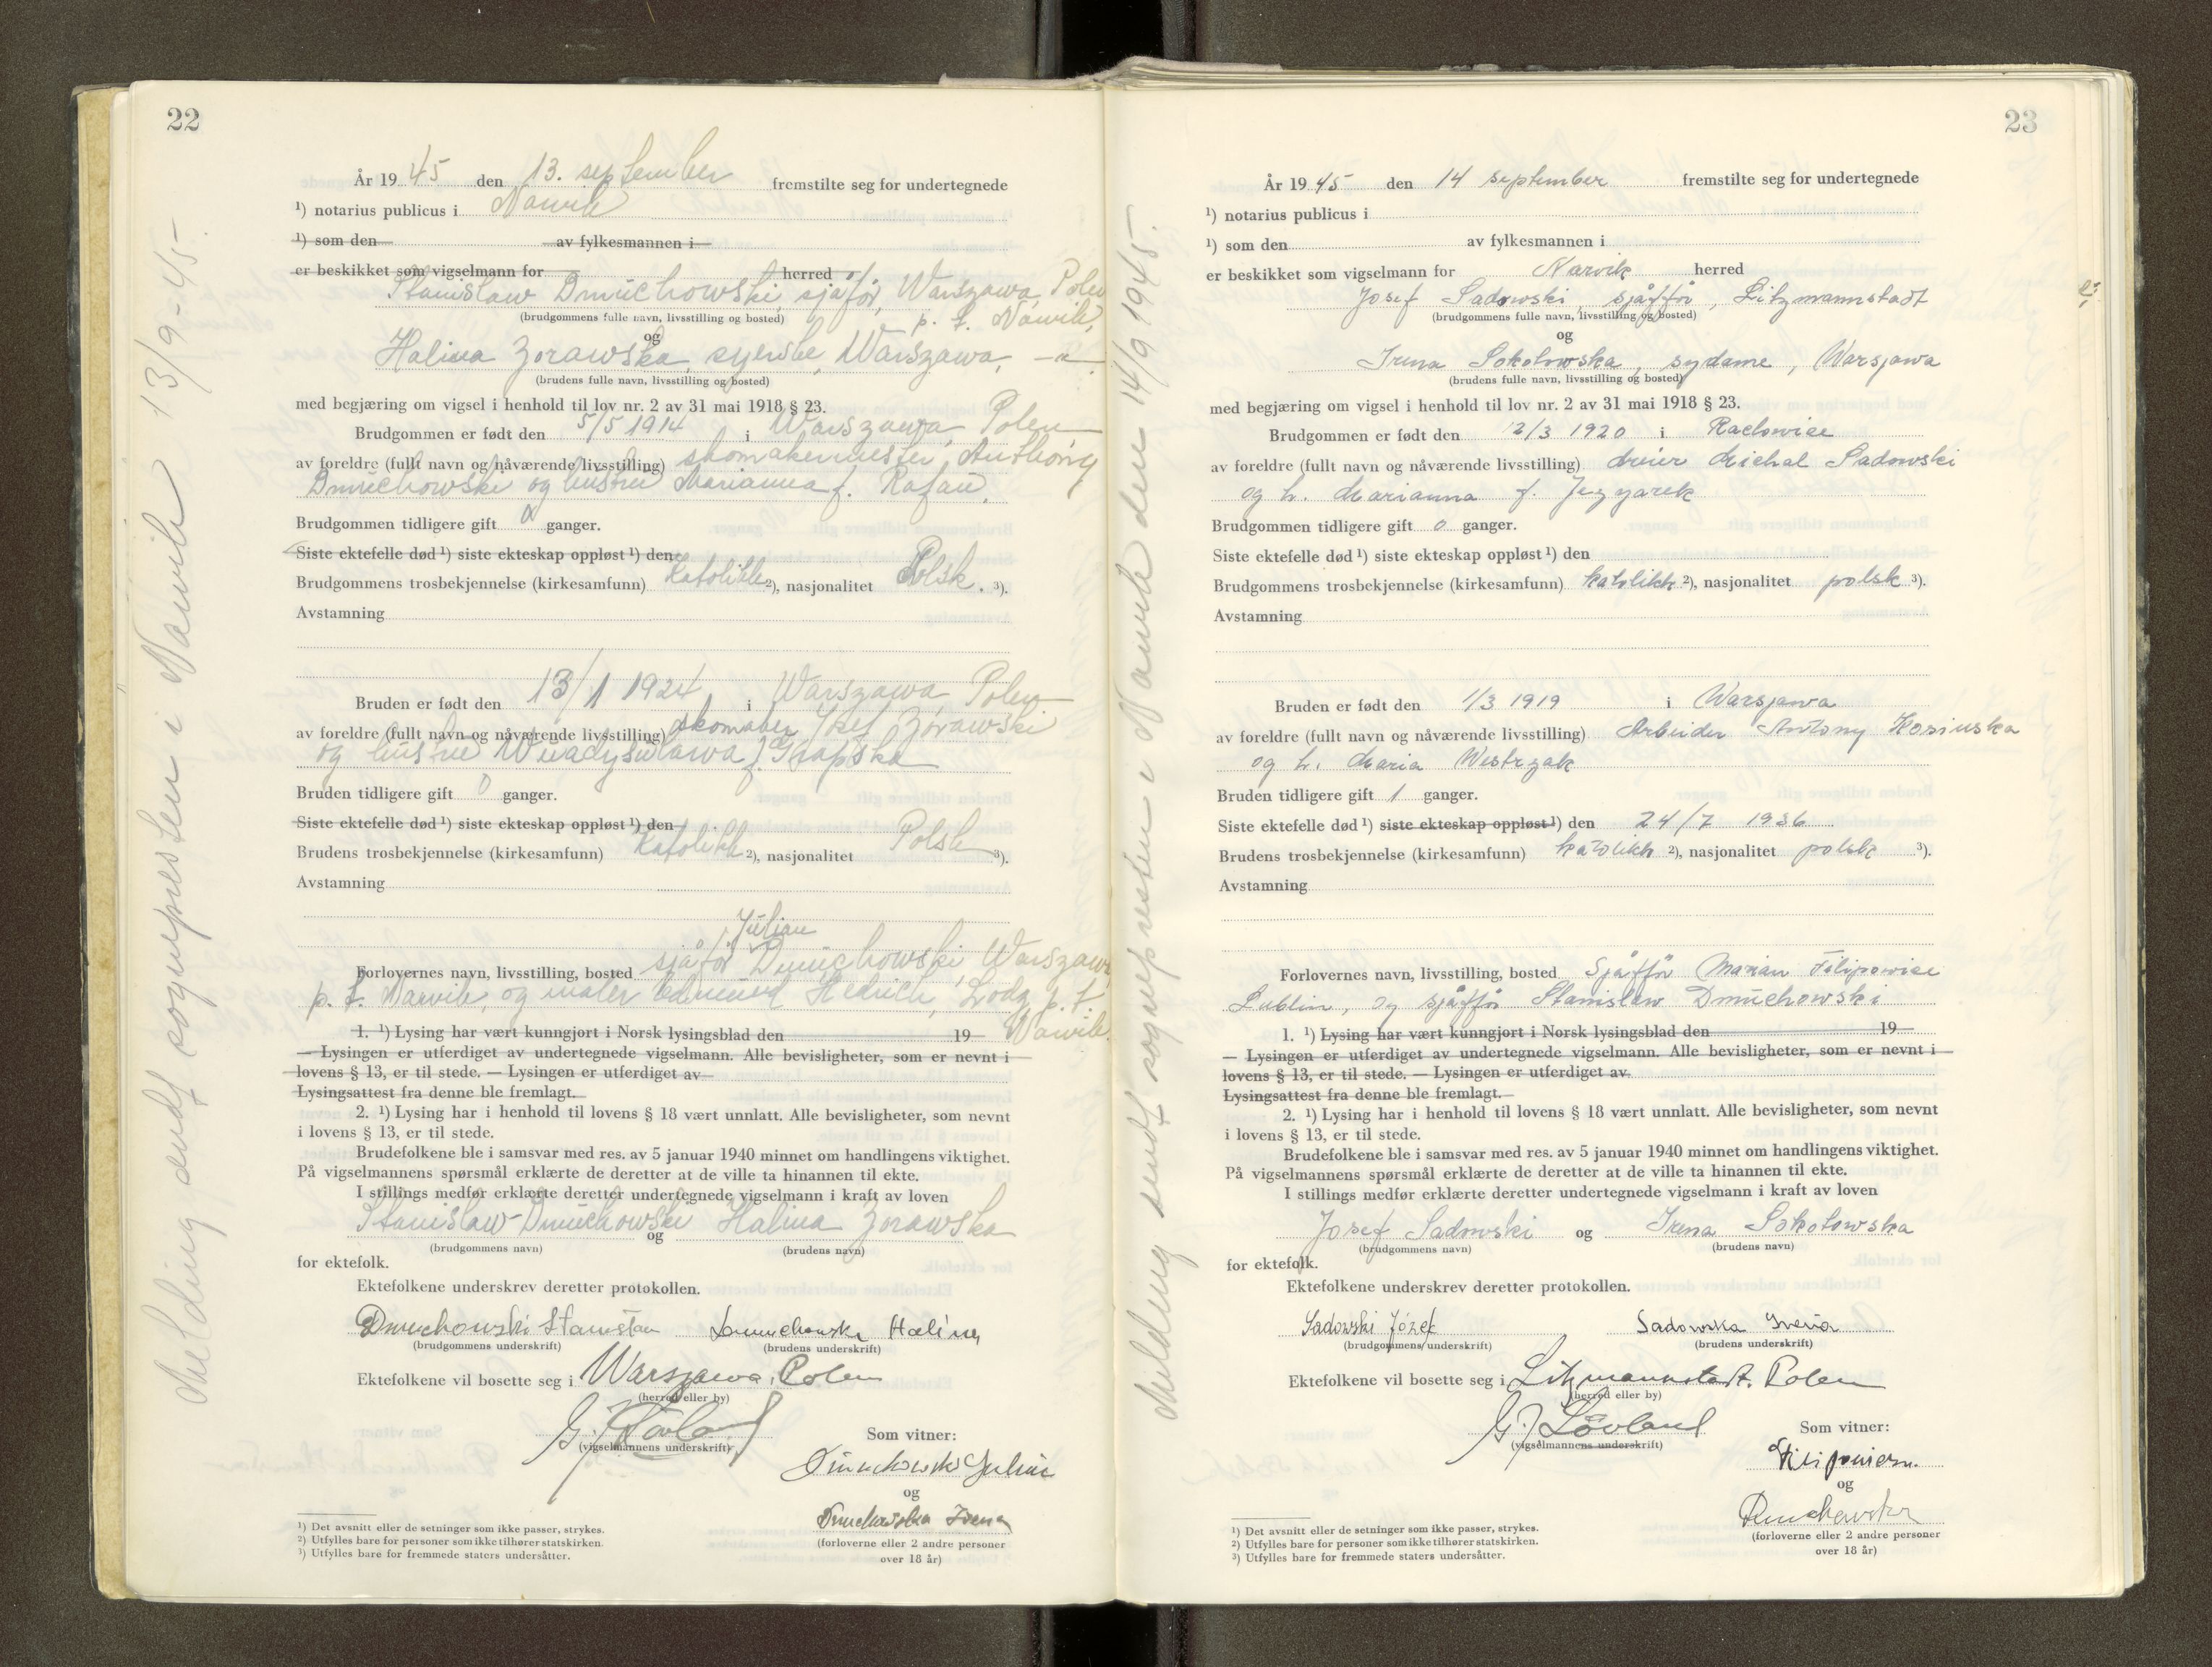 22
År 19 45 den 13. september fremstilte seg for undertegnede
¹) notarius publicus i Narvik
¹) som den av fylkesmannen i
er beskikket som vigselmann for herred
Stanislaw Dmuchowski, sjåfør, Warszawa, Polen
(brudgommens fulle navn, livsstilling og bosted) p. t. Narvik,
og
Halina Zorawska, syerske, Warszawa, —"—
(brudens fulle navn, livsstilling og bosted)
med begjæring om vigsel i henhold til lov nr. 2 av 31 mai 1918 § 23.
Brudgommen er født den 5/5 1914 i Warszawa, Polen
av foreldre (fullt navn og nåværende livsstilling) skomakermester, Anthony
Dmuchowski og hustru Marianna f. Rafau.
Brudgommen tidligere gift 0 ganger.
Siste ektefelle død ¹) siste ekteskap oppløst ¹) den
Brudgommens trosbekjennelse (kirkesamfunn) Katolikk ²), nasjonalitet Polsk. ³).
Avstamning
Bruden er født den 13/1 1924 i Warszawa, Polen
av foreldre (fullt navn og nåværende livsstilling) skomaker Zorawski
og hustru f. Grapska
Bruden tidligere gift 0 ganger.
Siste ektefelle død ¹) siste ekteskap oppløst ¹) den
Brudens trosbekjennelse (kirkesamfunn) Katolikk ²), nasjonalitet Polsk ³).
Avstamning
Julian
Forlovernes navn, livsstilling, bosted sjåfør Dmuchowski, Warszawa
p. t. Narvik, og maler Edmund Hedrich, Lodz p. t.
Narvik.
1. ¹) Lysing har vært kunngjort i Norsk lysingsblad den 19
— Lysingen er utferdiget av undertegnede vigselmann. Alle bevisligheter, som er nevnt i
lovens § 13, er til stede. — Lysingen er utferdiget av
Lysingsattest fra denne ble fremlagt.
2. ¹) Lysing har i henhold til lovens § 18 vært unnlatt. Alle bevisligheter, som nevnt
i lovens § 13, er til stede.
Brudefolkene ble i samsvar med res. av 5 januar 1940 minnet om handlingens viktighet.
På vigselmannens spørsmål erklærte de deretter at de ville ta hinannen til ekte.
I stillings medfør erklærte deretter undertegnede vigselmann i kraft av loven
Stanislaw Dmuchowski og Halina Zorawska
(brudgommens navn) (brudens navn)
for ektefolk.
Ektefolkene underskrev deretter protokollen.
Dmuchowski Stanisław Dmuchowska Halina
(brudgommens underskrift) (brudens underskrift)
Ektefolkene vil bosette seg i Warszawa, Polen
(herred eller by)
G. J. Løvland
(vigselmannens underskrift)
Som vitner:
Dmuchowski Julian
og
Dmuchowska Irena
(forloverne eller 2 andre personer
over 18 år)
¹) Det avsnitt eller de setninger som ikke passer, strykes.
²) Utfylles bare for personer som ikke tilhører statskirken.
³) Utfylles bare for fremmede staters undersåtter.
Melding sendt sognepresten i Narvik 13/9-45
23
År 19 45 den 14 september fremstilte seg for undertegnede
¹) notarius publicus i
¹) som den av fylkesmannen i
er beskikket som vigselmann for Narvik herred
Josef Sadowski, sjåffør, Litzmannstadt
(brudgommens fulle navn, livsstilling og bosted)
og
Irena Sokolowska, sydame, Warsjawa
(brudens fulle navn, livsstilling og bosted)
med begjæring om vigsel i henhold til lov nr. 2 av 31 mai 1918 § 23.
Brudgommen er født den 12/3 1920 i Raclowise
av foreldre (fullt navn og nåværende livsstilling) dreier Michal Sadowski
og h. Marianna f. Jezyarek
Brudgommen tidligere gift 0 ganger.
Siste ektefelle død ¹) siste ekteskap oppløst ¹) den
Brudgommens trosbekjennelse (kirkesamfunn) katolikk ²), nasjonalitet polsk ³).
Avstamning
Bruden er født den 1/3 1919 i Warsjawa
av foreldre (fullt navn og nåværende livsstilling) Arbeider Antony Kosinska
og h. Maria Westrzak
Bruden tidligere gift 1 ganger.
Siste ektefelle død ¹) siste ekteskap oppløst ¹) den 24/7 1936
Brudens trosbekjennelse (kirkesamfunn) katolikk ²), nasjonalitet polsk ³).
Avstamning
Forlovernes navn, livsstilling, bosted Sjåffør Marian Filipowise
Lublin, og sjåffør Stanislaw Dmuchowski
1. ¹) Lysing har vært kunngjort i Norsk lysingsblad den 19
— Lysingen er utferdiget av undertegnede vigselmann. Alle bevisligheter, som er nevnt i
lovens § 13, er til stede. — Lysingen er utferdiget av
Lysingsattest fra denne ble fremlagt.
2. ¹) Lysing har i henhold til lovens § 18 vært unnlatt. Alle bevisligheter, som nevnt
i lovens § 13, er til stede.
Brudefolkene ble i samsvar med res. av 5 januar 1940 minnet om handlingens viktighet.
På vigselmannens spørsmål erklærte de deretter at de ville ta hinannen til ekte.
I stillings medfør erklærte deretter undertegnede vigselmann i kraft av loven
Josef Sadowski og Irena Sokolowska
(brudgommens navn) (brudens navn)
for ektefolk.
Ektefolkene underskrev deretter protokollen.
Sadowski Józef Sadowska Irena
(brudgommens underskrift) (brudens underskrift)
Ektefolkene vil bosette seg i Litzmannstadt. Polen
(herred eller by)
G. J. Løvland
(vigselmannens underskrift)
Som vitner:
og
Dmuchowski
(forloverne eller 2 andre personer
over 18 år)
¹) Det avsnitt eller de setninger som ikke passer, strykes.
²) Utfylles bare for personer som ikke tilhører statskirken.
³) Utfylles bare for fremmede staters undersåtter.
Melding sendt sognepresten i Narvik den 14/9 1945.